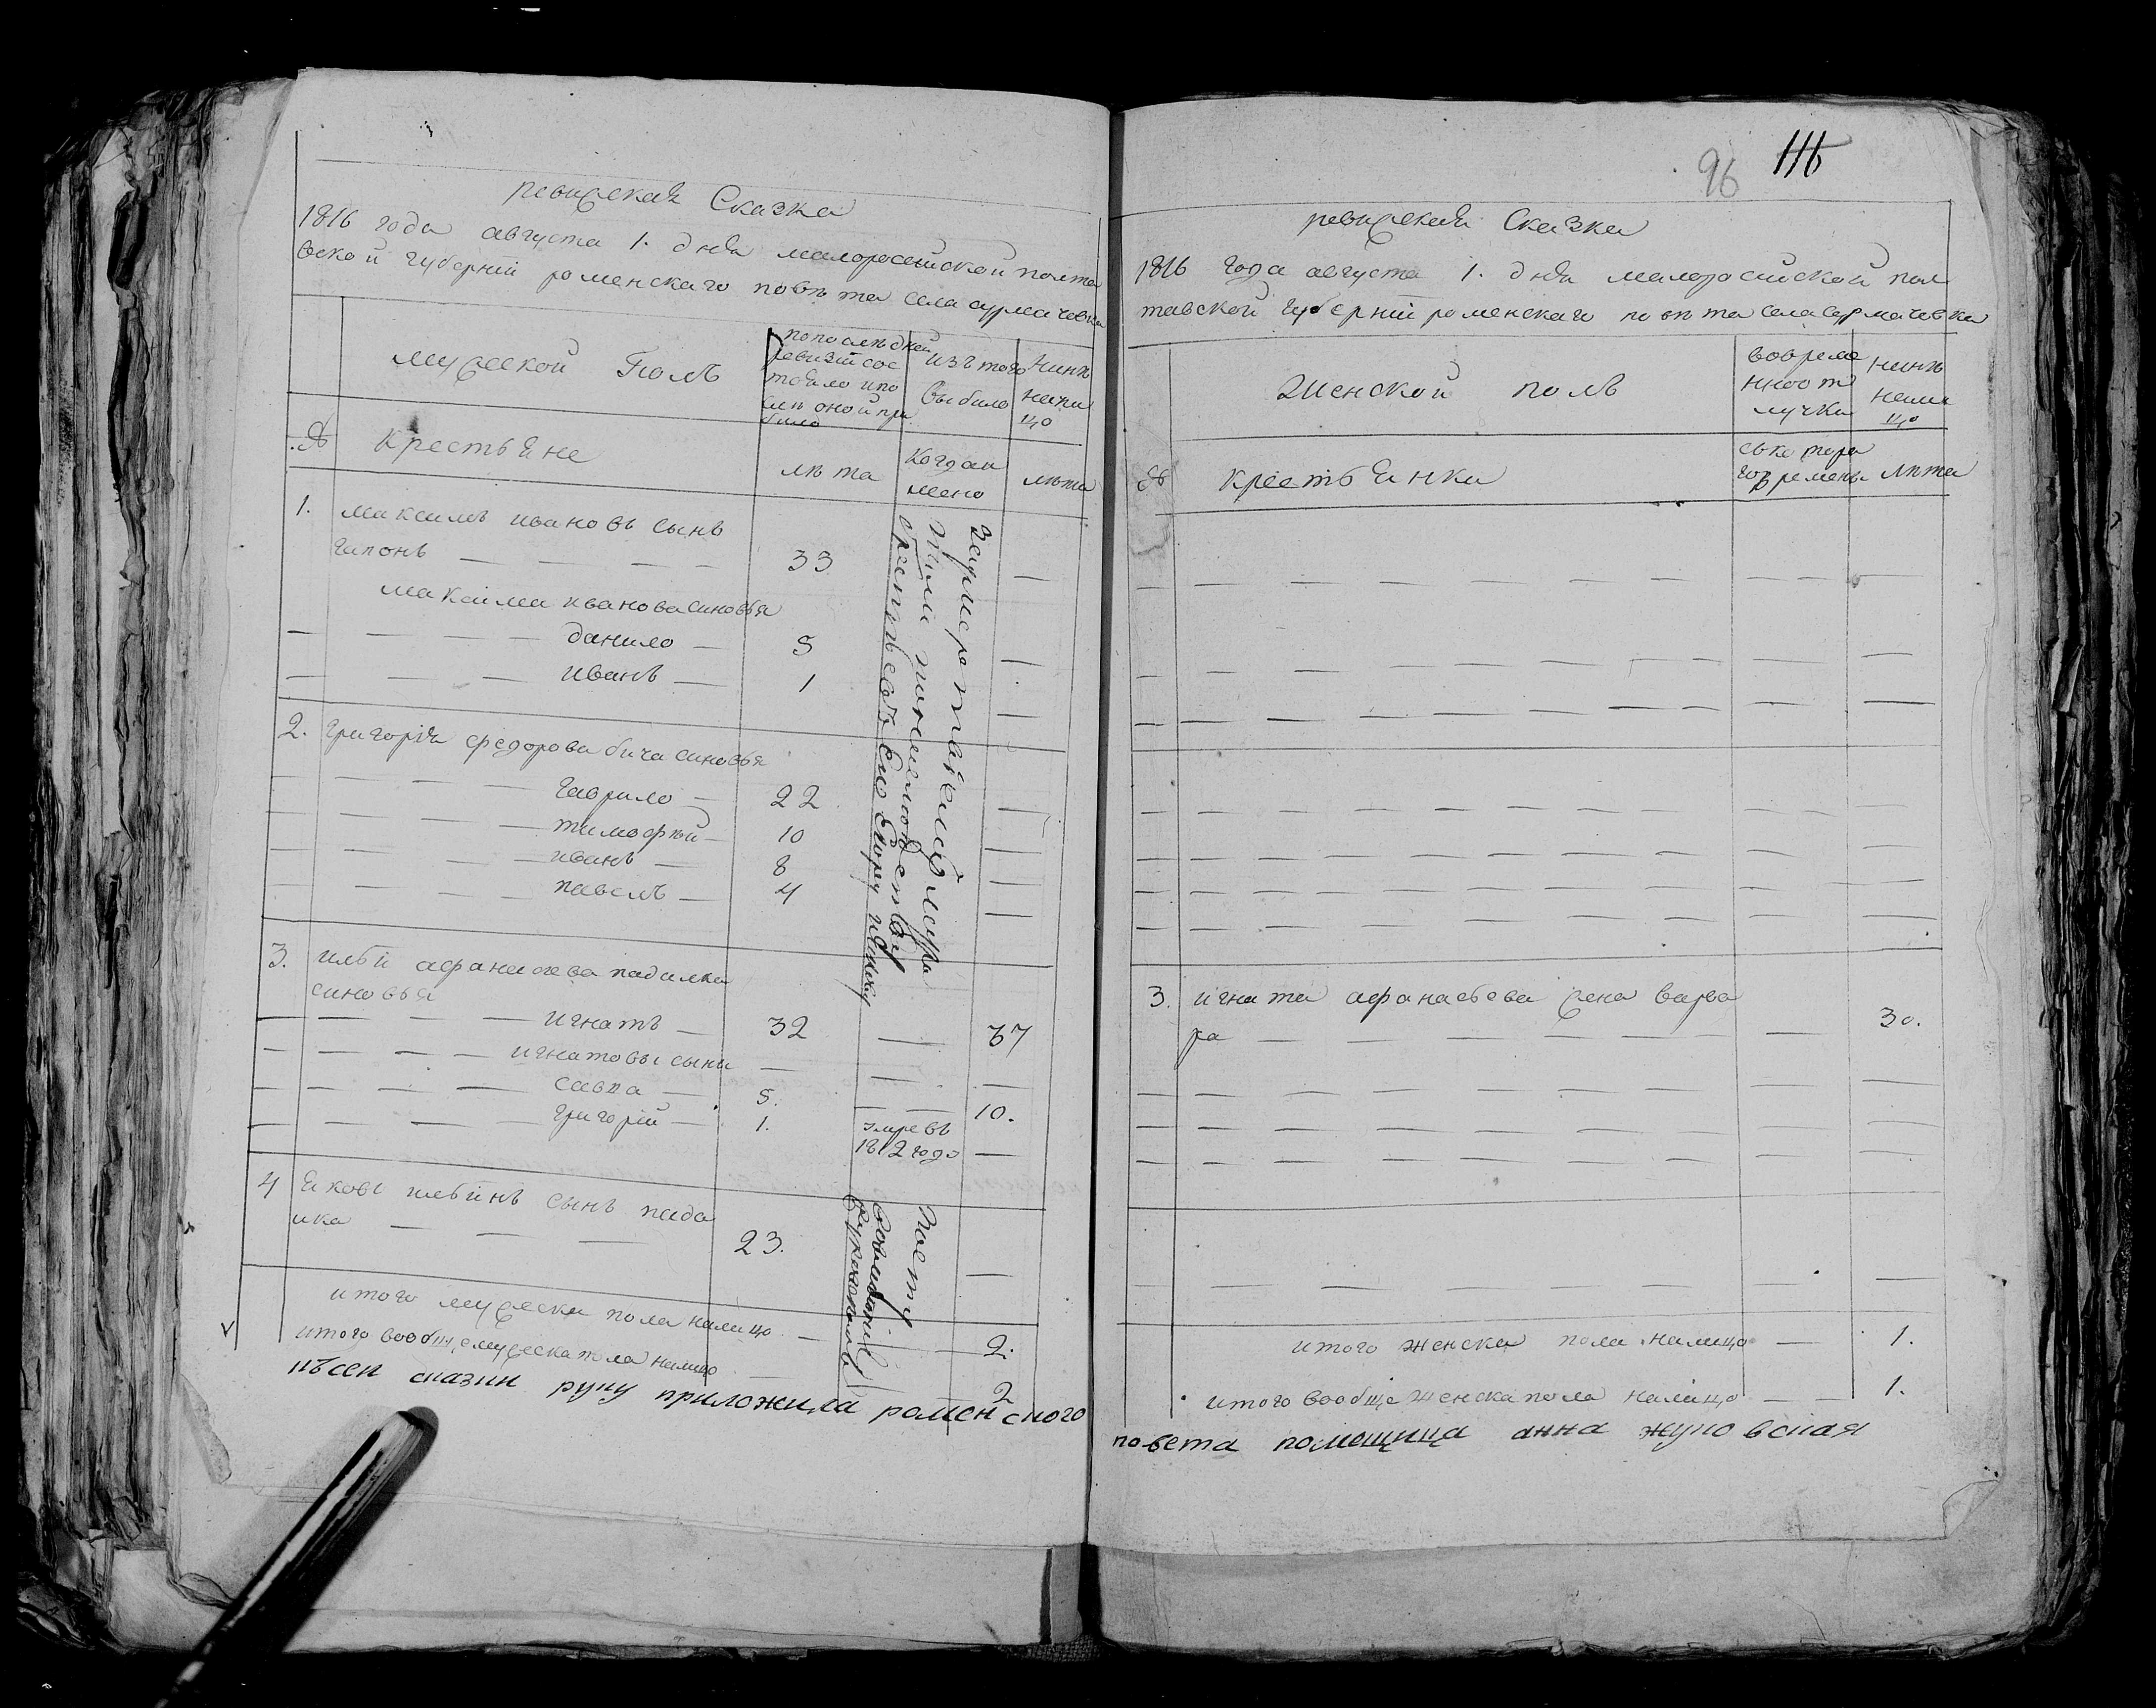 ревижская Сказка
1816 года августа 1. дня малоросейской полта
вской губерний роменскаго повѣта села сурмачевки
мужеской Полъ
попослѣдней
ревизіи сос
тояло ипо
слѣ оной при
было
изъ того
выбило
нинѣ
нали
цо
№ крестьяне
лѣта
когдаи
мено
лѣта
1. максимъ ивановъ сынъ
гапонъ — — — — 33 —
максима иванова синовья
— — — — данило — 5 —
— — — — иванъ — 1 —
2. григорія федорова бича синовья
— — — гаврило — 22 —
— — — тимофѣй — 10 —
— — — иванъ — 8 —
— — — павелъ — 4 —
3. ильи афанасиева падалка
синовья
— — — — игнатъ — 32 — 37
— — — — игнатовы сыны — — —
— — — — савва — 5. — 10.
— — — — григорій — 1. умре въ
1812 годо —
4 яковъ ильинъ сынъ пада
лка — — — 23. —
итого мужеска пола налицо — 2.
итого вообще мужеска пола налицо — 2
къ сей сказки руку приложила роменского
96 116
ревижская Сказка
1816 года августа 1. дня малоросийской пол
тавской губерний роменскаго повѣта села сурмачовки
Женской полъ
вовреме
нной от
лучки
нинѣ
нали
цо
№ крестьянки
съкотора
го времены
лѣта
3. игната афанасьева жена варва
ра — — — — — — — 30.
итого женска пола налицо — 1.
итого вообще женска пола налицо — — 1.
повета помещица анна жуковская